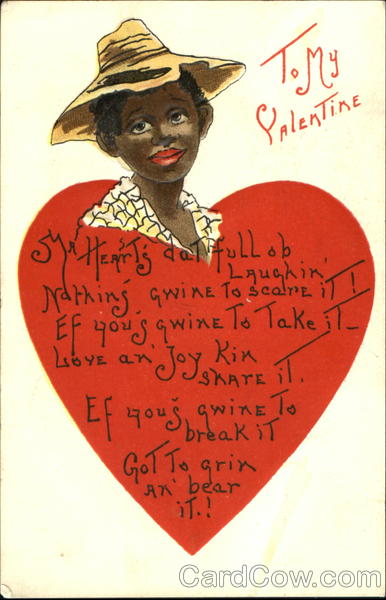 To My
Valentine
My Heart's dat full ob
Laughin',
Nothins' gwine To scare iT!
Ef you's gwine To Take iT—
Love an' Joy Kin
share iT.
Ef you's gwine To
break iT
GoT To grin
an' bear
iT.!
CardCow.com